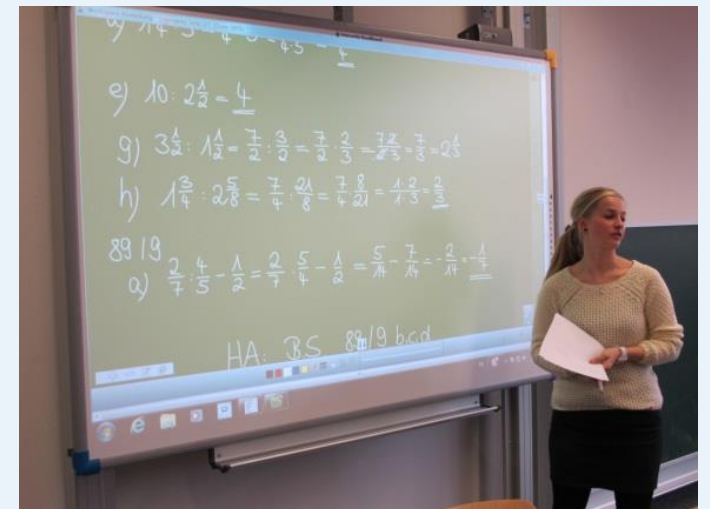 e) 10 : 2 1/2 = 4
g) 3 1/2 : 1 1/2 = 7/2 : 3/2 = 7/2 · 2/3 = 7·2/2·3 = 7/3 = 2 1/3
h) 1 3/4 : 2 5/8 = 7/4 : 21/8 = 7/4 · 8/21 = 1·2/1·3 = 2/3
89/9
a) 2/7 : 4/5 − 1/2 = 2/7 · 5/4 − 1/2 = 5/14 − 7/14 = −2/14 = −1/7
HA: BS 89/9 b,c,d